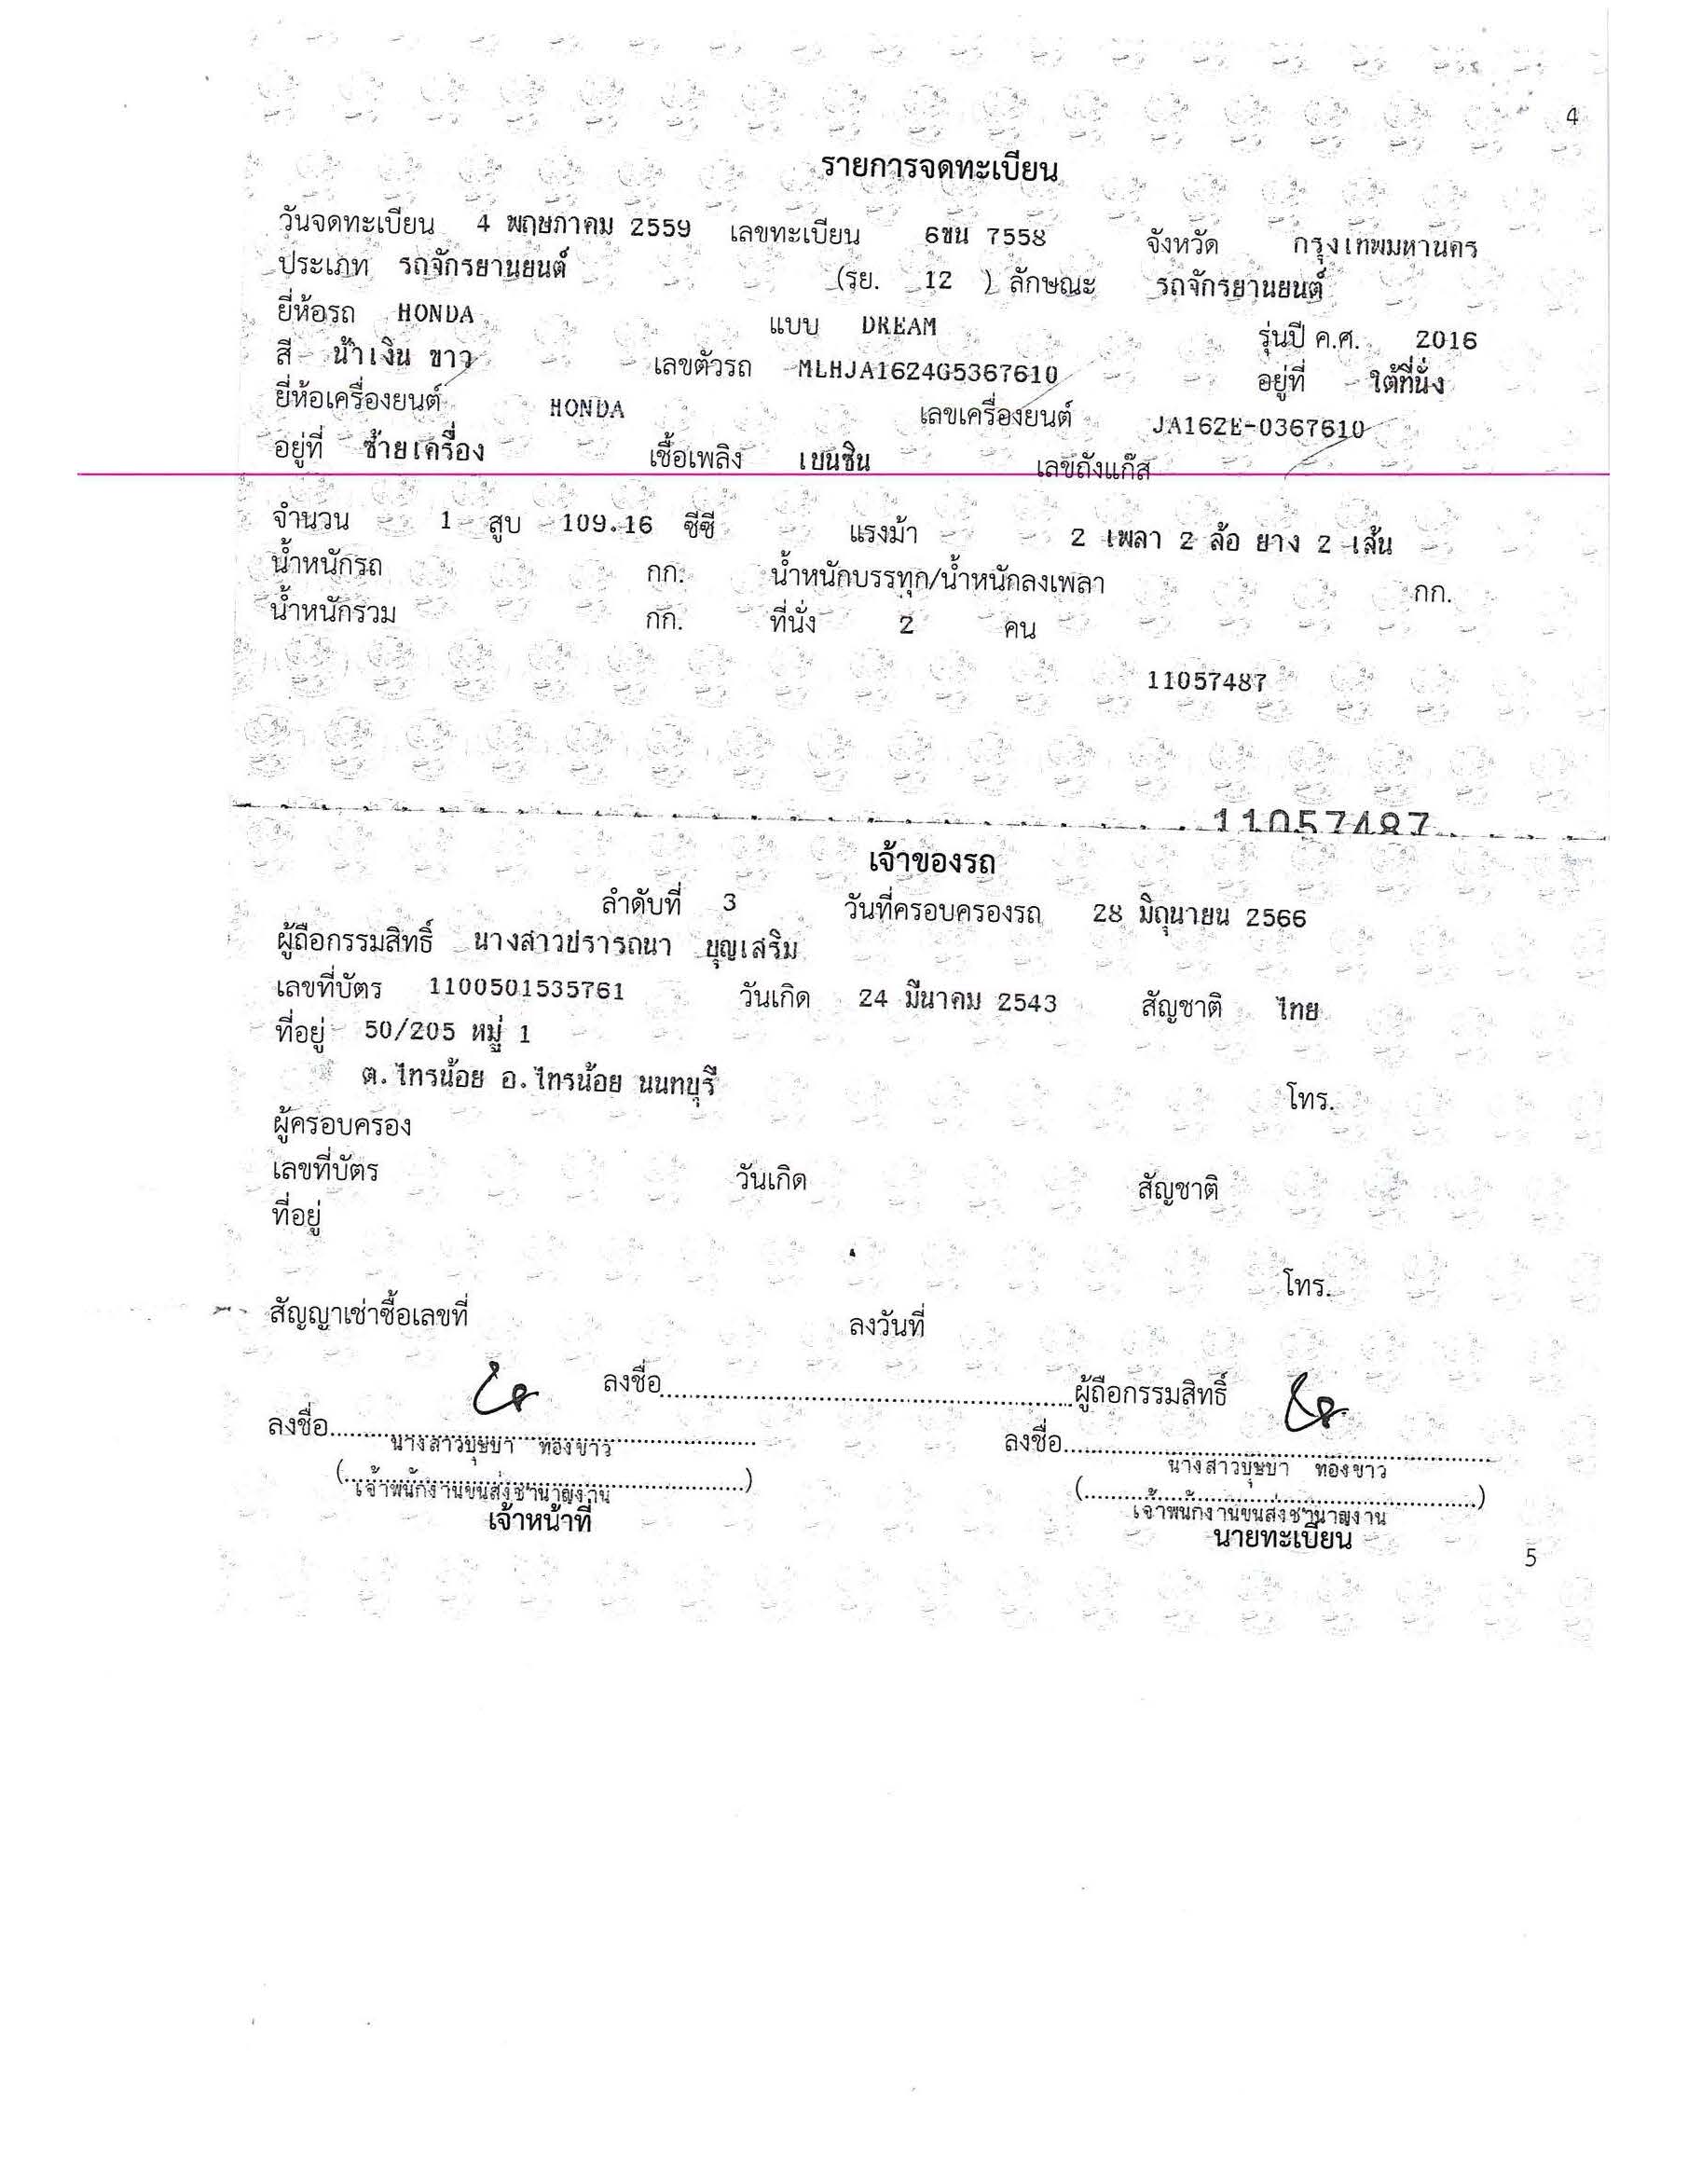 4
รายการจดทะเบียน
วันจดทะเบียน 4 พฤษภาคม 2559 เลขทะเบียน 6ขน 7558 จังหวัด กรุงเทพมหานคร
ประเภท รถจักรยานยนต์ (รย. 12 ) ลักษณะ รถจักรยานยนต์
ยี่ห้อรถ HONDA แบบ DREAM รุ่นปี ค.ศ. 2016
สี น้ำเงิน ขาว เลขตัวรถ MLHJA1624G5367610 อยู่ที่ ใต้ที่นั่ง
ยี่ห้อเครื่องยนต์ HONDA เลขเครื่องยนต์ JA162E-0367610
อยู่ที่ ซ้ายเครื่อง เชื้อเพลิง เบนซิน เลขถังแก๊ส
จำนวน 1 สูบ 109.16 ซีซี แรงม้า 2 เพลา 2 ล้อ ยาง 2 เส้น
น้ำหนักรถ กก. น้ำหนักบรรทุก/น้ำหนักลงเพลา กก.
น้ำหนักรวม กก. ที่นั่ง 2 คน
11057487
11057487
เจ้าของรถ
ลำดับที่ 3 วันที่ครอบครองรถ 28 มิถุนายน 2566
ผู้ถือกรรมสิทธิ์ นางสาวปรารถนา บุญเสริม
เลขที่บัตร 1100501535761 วันเกิด 24 มีนาคม 2543 สัญชาติ ไทย
ที่อยู่ 50/205 หมู่ 1
ต.ไทรน้อย อ.ไทรน้อย นนทบุรี โทร.
ผู้ครอบครอง
เลขที่บัตร วันเกิด สัญชาติ
ที่อยู่
โทร.
สัญญาเช่าซื้อเลขที่ ลงวันที่
ลงชื่อ ผู้ถือกรรมสิทธิ์
ลงชื่อ ลงชื่อ
นางสาวบุษบา ทองขาว นางสาวบุษบา ทองขาว
( ) ( )
เจ้าพนักงานขนส่งชำนาญงาน เจ้าพนักงานขนส่งชำนาญงาน
เจ้าหน้าที่ นายทะเบียน
5